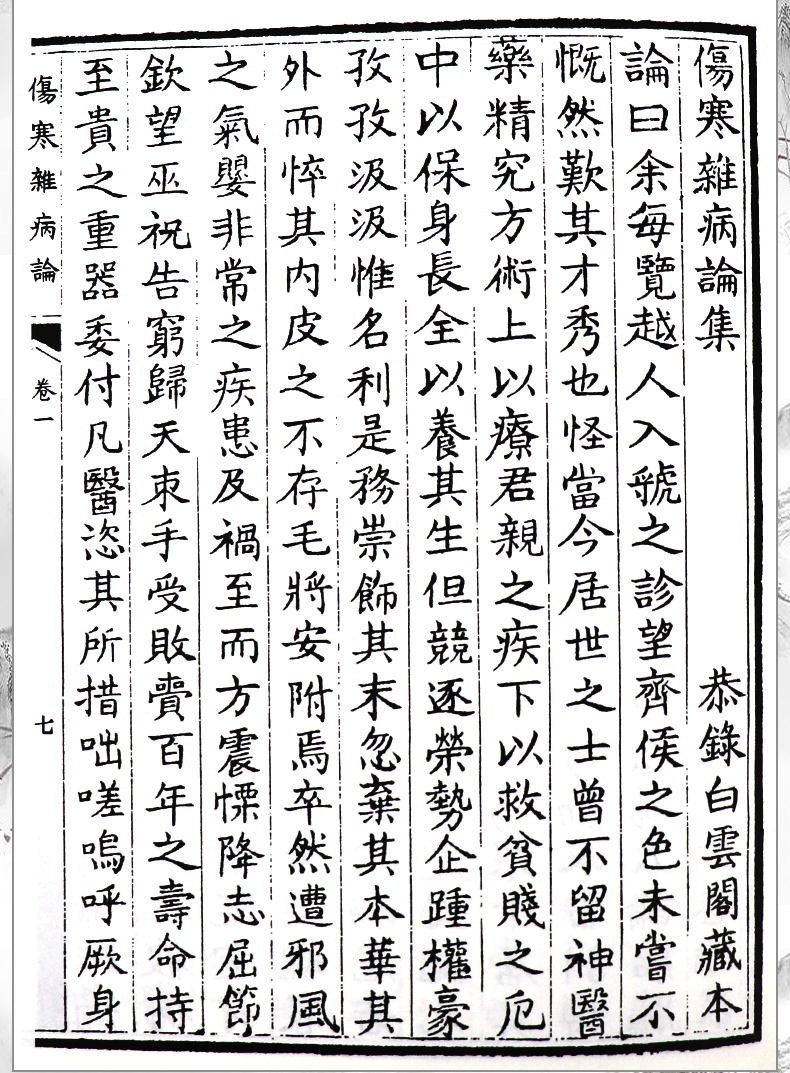 傷寒雜病論集　恭錄白雲閣藏本
論曰余每覽越人入虢之診望齊侯之色未嘗不
慨然歎其才秀也怪當今居世之士曾不留神醫
藥精究方術上以療君親之疾下以救貧賤之厄
中以保身長全以養其生但競逐榮勢企踵權豪
孜孜汲汲惟名利是務崇飾其末忽棄其本華其
外而悴其內皮之不存毛將安附焉卒然遭邪風
之氣嬰非常之疾患及禍至而方震慄降志屈節
欽望巫祝告窮歸天束手受敗賷百年之壽命持
至貴之重器委付凡醫恣其所措咄嗟嗚呼厥身
傷寒雜病論　卷一　七